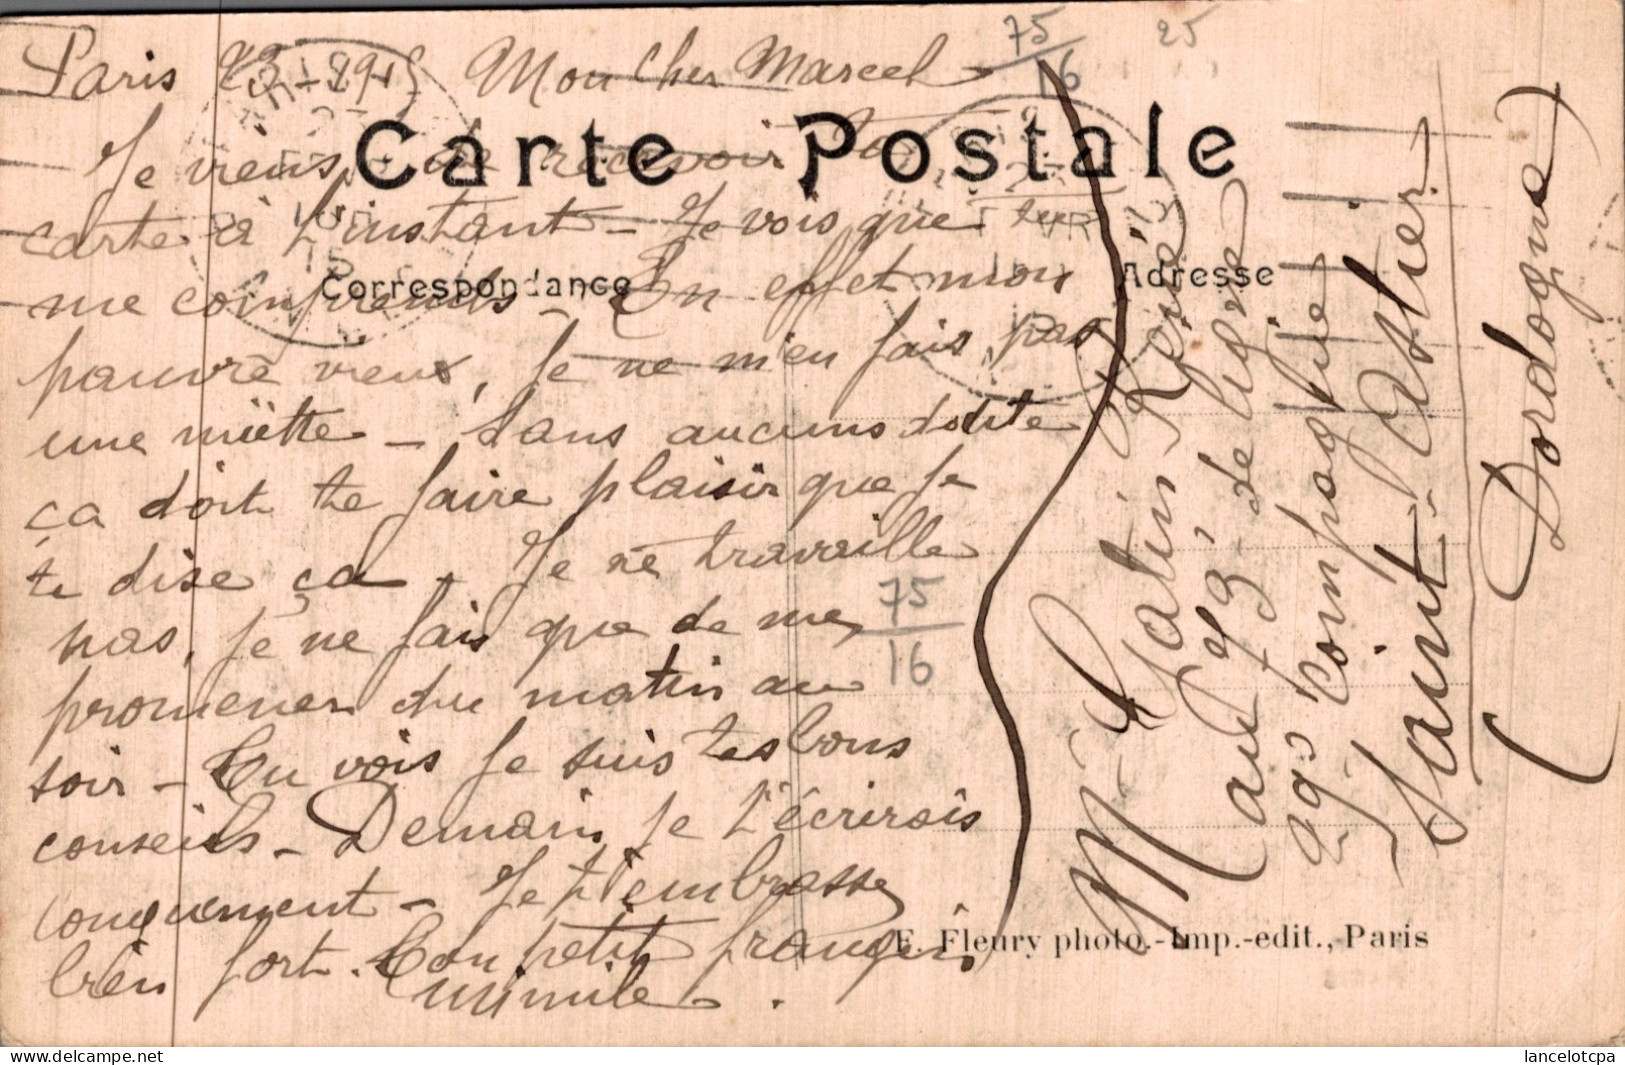 Paris 2-2-1915 Mon Cher Marcel
75
16
25
Carte Postale
Correspondance
Adresse
Je viens de recevoir ta
carte à l'instant - Je vois que tu
me comprends - En effet mon
pauvre vieux, Je ne m'en fais pas
une miette - Sans aucuns doute
ça doit te faire plaisir que Je
te dise ça. Je ne travaille
pas, Je ne fais que de me
promener du matin au
soir - Tu vois Je suis tes bons
conseils - Demain Je t'écrirais
longuement - Je t'embrasse
bien fort. Ton petit frangin
Mimile.
75
16
Mr Galin René
au 93e de ligne
29e Compagnie
Saint-Astier
(Dordogne)
E. Fleury photo.-Imp.-edit., Paris
lancelotcpa-F
https://www.delcampe.net
lancelotcpa